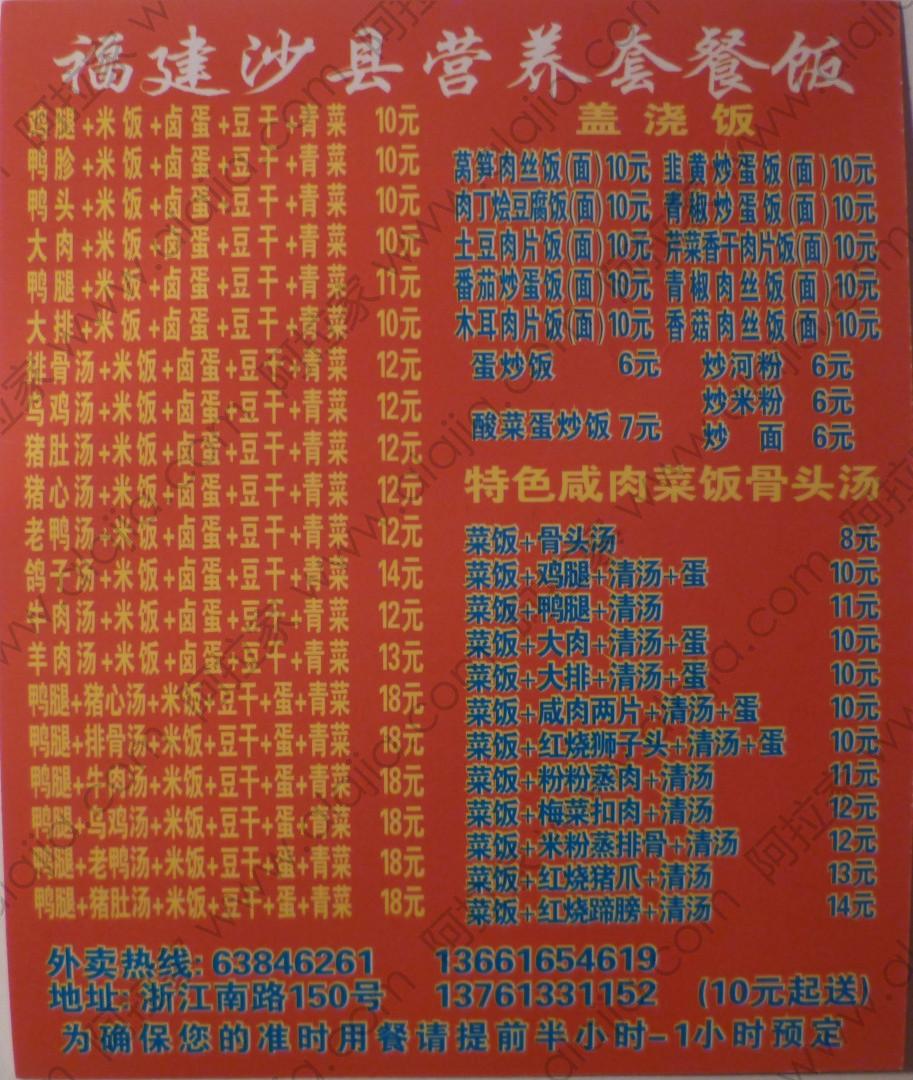 福建沙县营养套餐饭
鸡腿+米饭+卤蛋+豆干+青菜 10元
鸭胗+米饭+卤蛋+豆干+青菜 10元
鸭头+米饭+卤蛋+豆干+青菜 10元
大肉+米饭+卤蛋+豆干+青菜 10元
鸭腿+米饭+卤蛋+豆干+青菜 11元
大排+米饭+卤蛋+豆干+青菜 10元
排骨汤+米饭+卤蛋+豆干+青菜 12元
乌鸡汤+米饭+卤蛋+豆干+青菜 12元
猪肚汤+米饭+卤蛋+豆干+青菜 12元
猪心汤+米饭+卤蛋+豆干+青菜 12元
老鸭汤+米饭+卤蛋+豆干+青菜 12元
鸽子汤+米饭+卤蛋+豆干+青菜 14元
牛肉汤+米饭+卤蛋+豆干+青菜 12元
羊肉汤+米饭+卤蛋+豆干+青菜 13元
鸭腿+猪心汤+米饭+豆干+蛋+青菜 18元
鸭腿+排骨汤+米饭+豆干+蛋+青菜 18元
鸭腿+牛肉汤+米饭+豆干+蛋+青菜 18元
鸭腿+乌鸡汤+米饭+豆干+蛋+青菜 18元
鸭腿+老鸭汤+米饭+豆干+蛋+青菜 18元
鸭腿+猪肚汤+米饭+豆干+蛋+青菜 18元
盖浇饭
莴笋肉丝饭(面)10元 韭黄炒蛋饭(面)10元
肉丁烩豆腐饭(面)10元 青椒炒蛋饭(面)10元
土豆肉片饭(面)10元 芹菜香干肉片饭(面)10元
番茄炒蛋饭(面)10元 青椒肉丝饭(面)10元
木耳肉片饭(面)10元 香菇肉丝饭(面)10元
蛋炒饭 6元 炒河粉 6元
炒米粉 6元
酸菜蛋炒饭 7元 炒 面 6元
特色咸肉菜饭骨头汤
菜饭+骨头汤 8元
菜饭+鸡腿+清汤+蛋 10元
菜饭+鸭腿+清汤 11元
菜饭+大肉+清汤+蛋 10元
菜饭+大排+清汤+蛋 10元
菜饭+咸肉两片+清汤+蛋 10元
菜饭+红烧狮子头+清汤+蛋 10元
菜饭+粉粉蒸肉+清汤 11元
菜饭+梅菜扣肉+清汤 12元
菜饭+米粉蒸排骨+清汤 12元
菜饭+红烧猪爪+清汤 13元
菜饭+红烧蹄膀+清汤 14元
外卖热线: 63846261 13661654619
地址: 浙江南路150号 13761331152 (10元起送)
为确保您的准时用餐请提前半小时-1小时预定
阿拉家 www.alajia.com